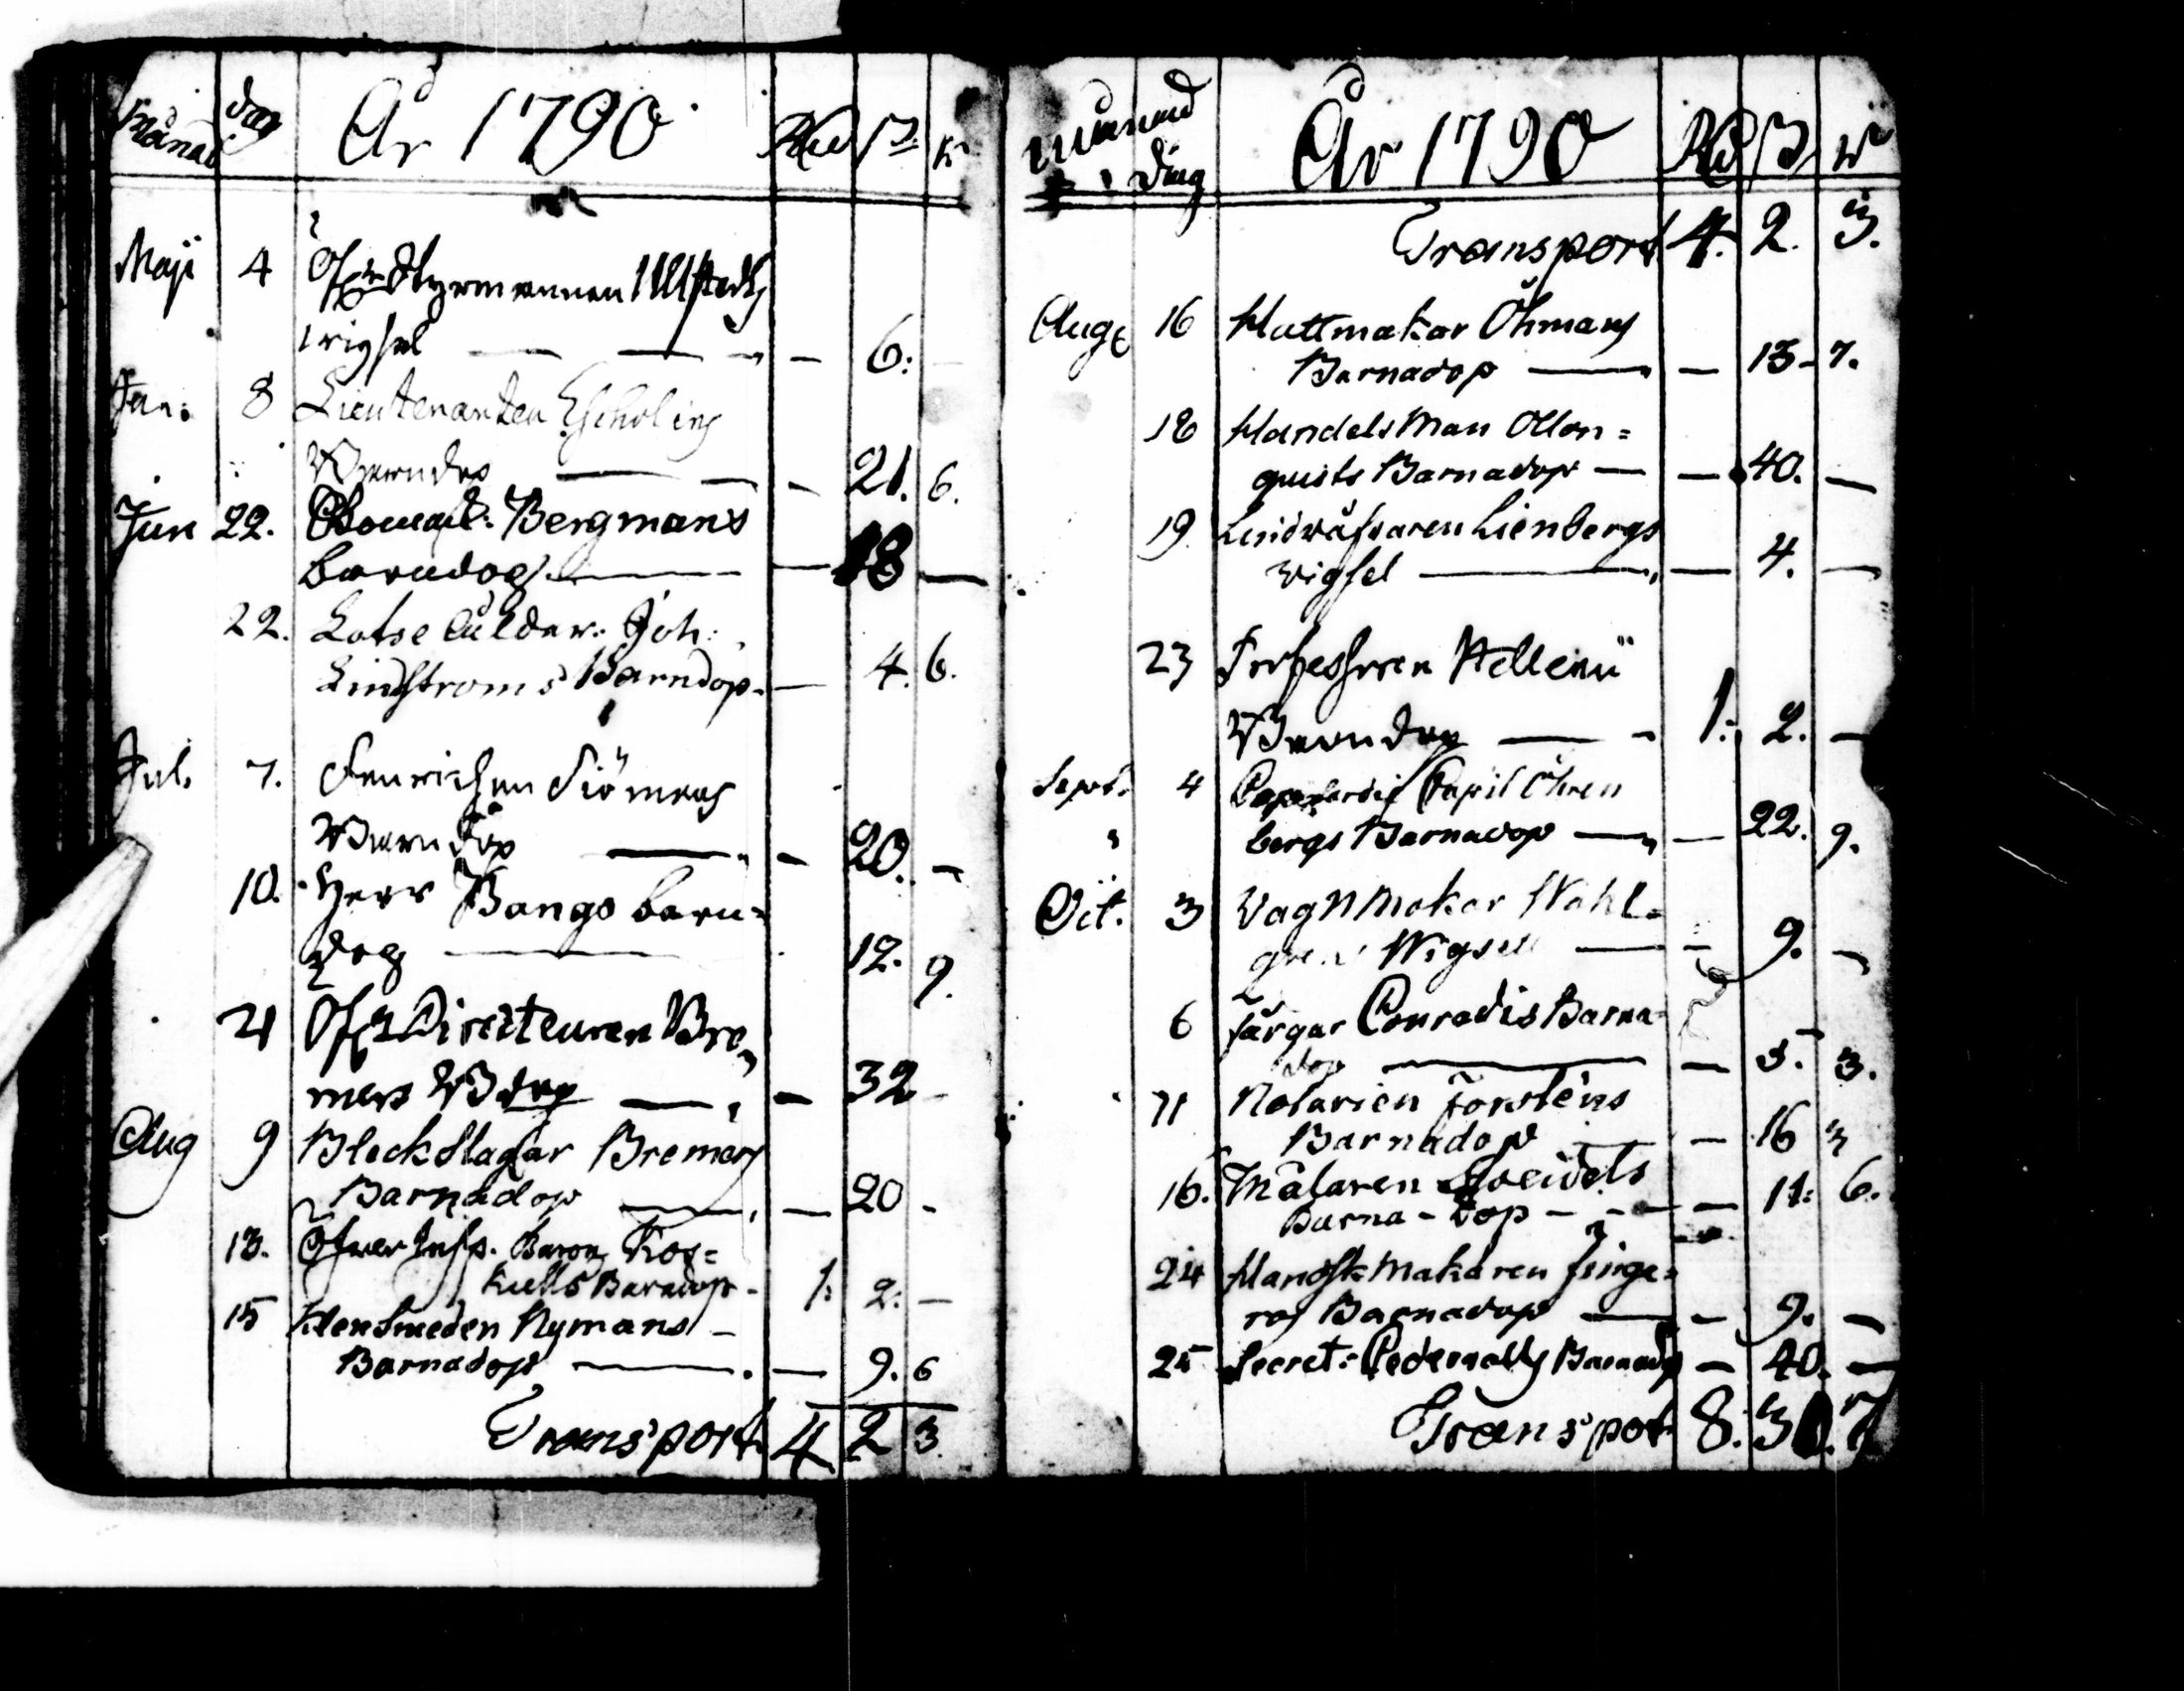 Månad dag År 1790 Rd ß. r.
Maji 4 Öfr Styrmannen Ullstedts
wigsel — — — 6. —
Jun. 8 Lieutenanten Eschelins
Barndop — — — 21. 6.
Jun 22. Bergmans
barndop — — 18 —
22. Lotse Ålder. Joh:
Lindstroms Barndop. — 4. 6.
Jul. 7. Fenrichen Siömans
Barndop — — 20. —
10. Herr Bangs barn=
dop — 12. 9.
21 Öfr Directeuren Bre,
mers Bdop — — 32 -
Aug 9 Bleckslagar Bremers
Barnadop — — 20 -
13. Öfver Insp. Baron Kos=
kulls Barndop - 1. 2. —
15 Klensmeden Nymans —
Barnadop — — 9. 6
Transport 4 2 3
Månad dag År 1790 Rd ß r
Transport 4. 2. 3.
Aug 16 Hattmakar Öhmans
Barnadop — — 13 - 7.
18 Handels Man Ollon=
quists Barnadop — — 40. —
19. Lienbergs
wigsel — — 4. —
23 Professoren Hellenii
Barndop — - 1. 2. —
Sept. 4 Öhren
bergs Barnadop — — 22. 9.
Oct. 3 Vagnmakar Wahl=
grens Wigsell — — 9. —
6 färgar Conradis Barna=
dop — — 5. 3.
11 Notarien Forsténs
Barnadop — — 16 3
16. Målaren
Barna-dop - - — — 11. 6.
24 Handskmakaren finge=
ros Barnadop — — 9. —
25 Secret: Pedernally Barnadop — 40. —
Transpot 8. 30. 7